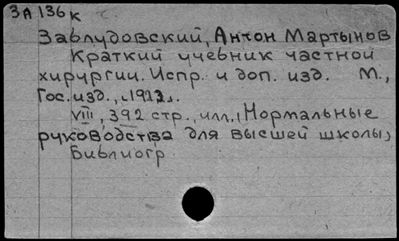 ЗА 136 к
Завлудовский, Антон Мартынов
Краткий учебник частной
хирургии. Испр. и доп. изд. М.,
Гос. изд., [1913].
VIII, 392 стр., илл., (Нормальные
руководства для высшей школы)
Библиогр